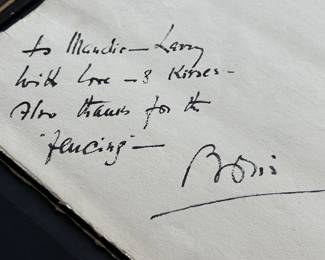 to Maudie – Larry
with love – & Kisses –
Also thanks for the
"fencing" –
Boris